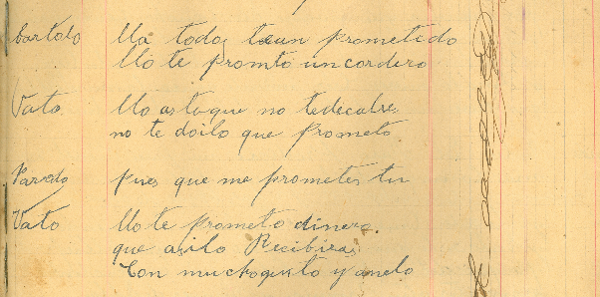 bartolo Llá todos teun prometido
Lló te promto uncordero
Vato Lló astaque no tedecalre
no te doilo que prometo
Parrado pues que me prometes tu
Vato Llo te prometo dinero.
que asilo Recibiras
Con muchogusto y anelo